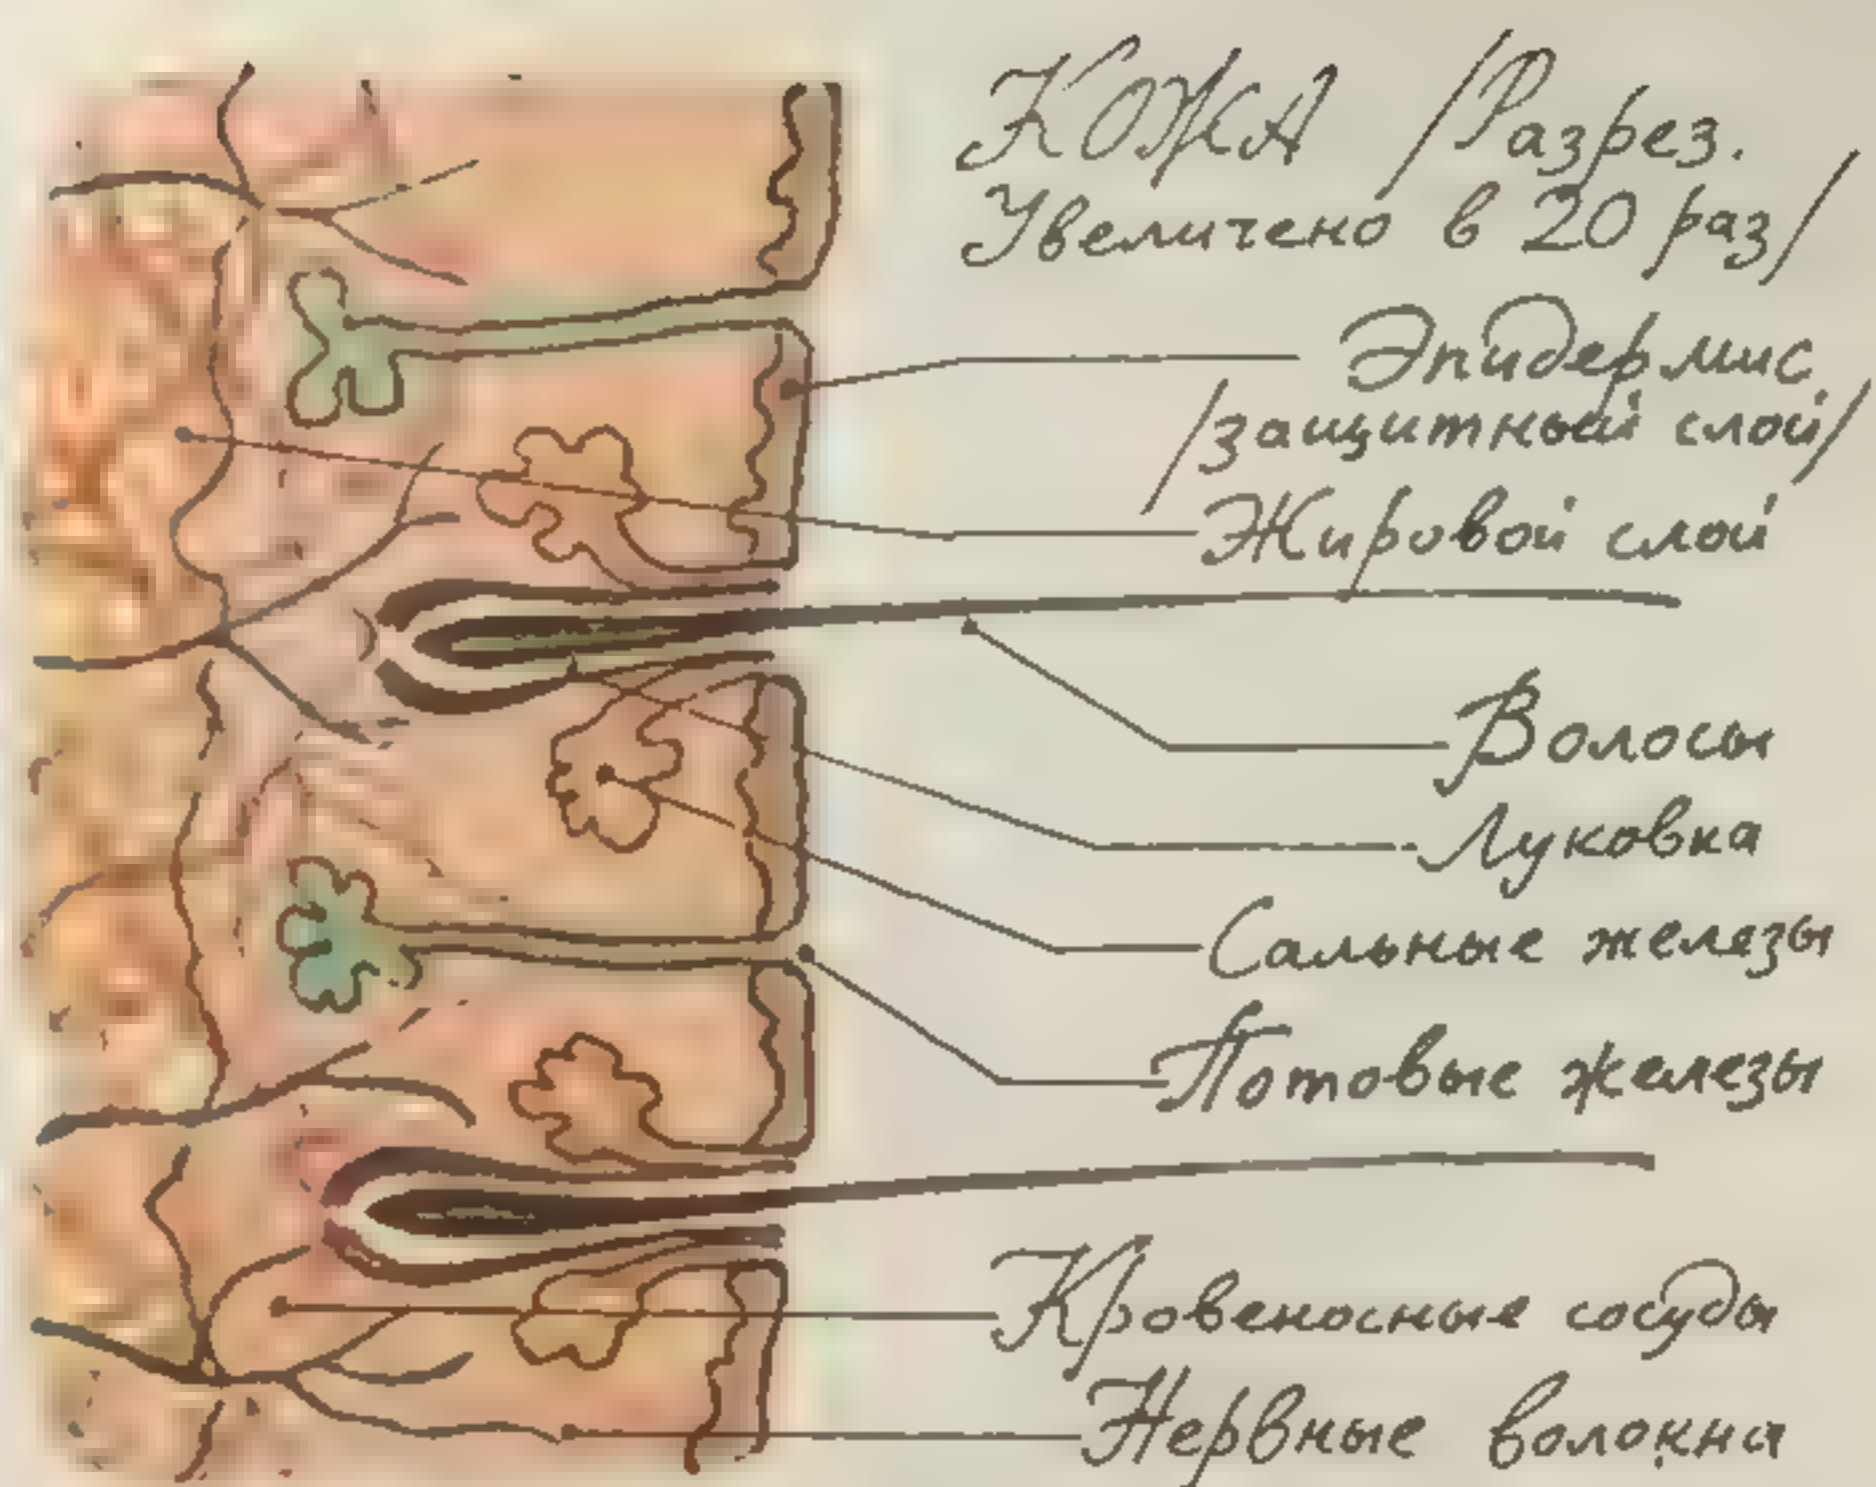 КОЖА /Разрез.
Увеличено в 20 раз/
Эпидермис
/защитный слой/
Жировой слой
Волосы
Луковка
Сальные железы
Потовые железы
Кровеносные сосуды
Нервные волокна